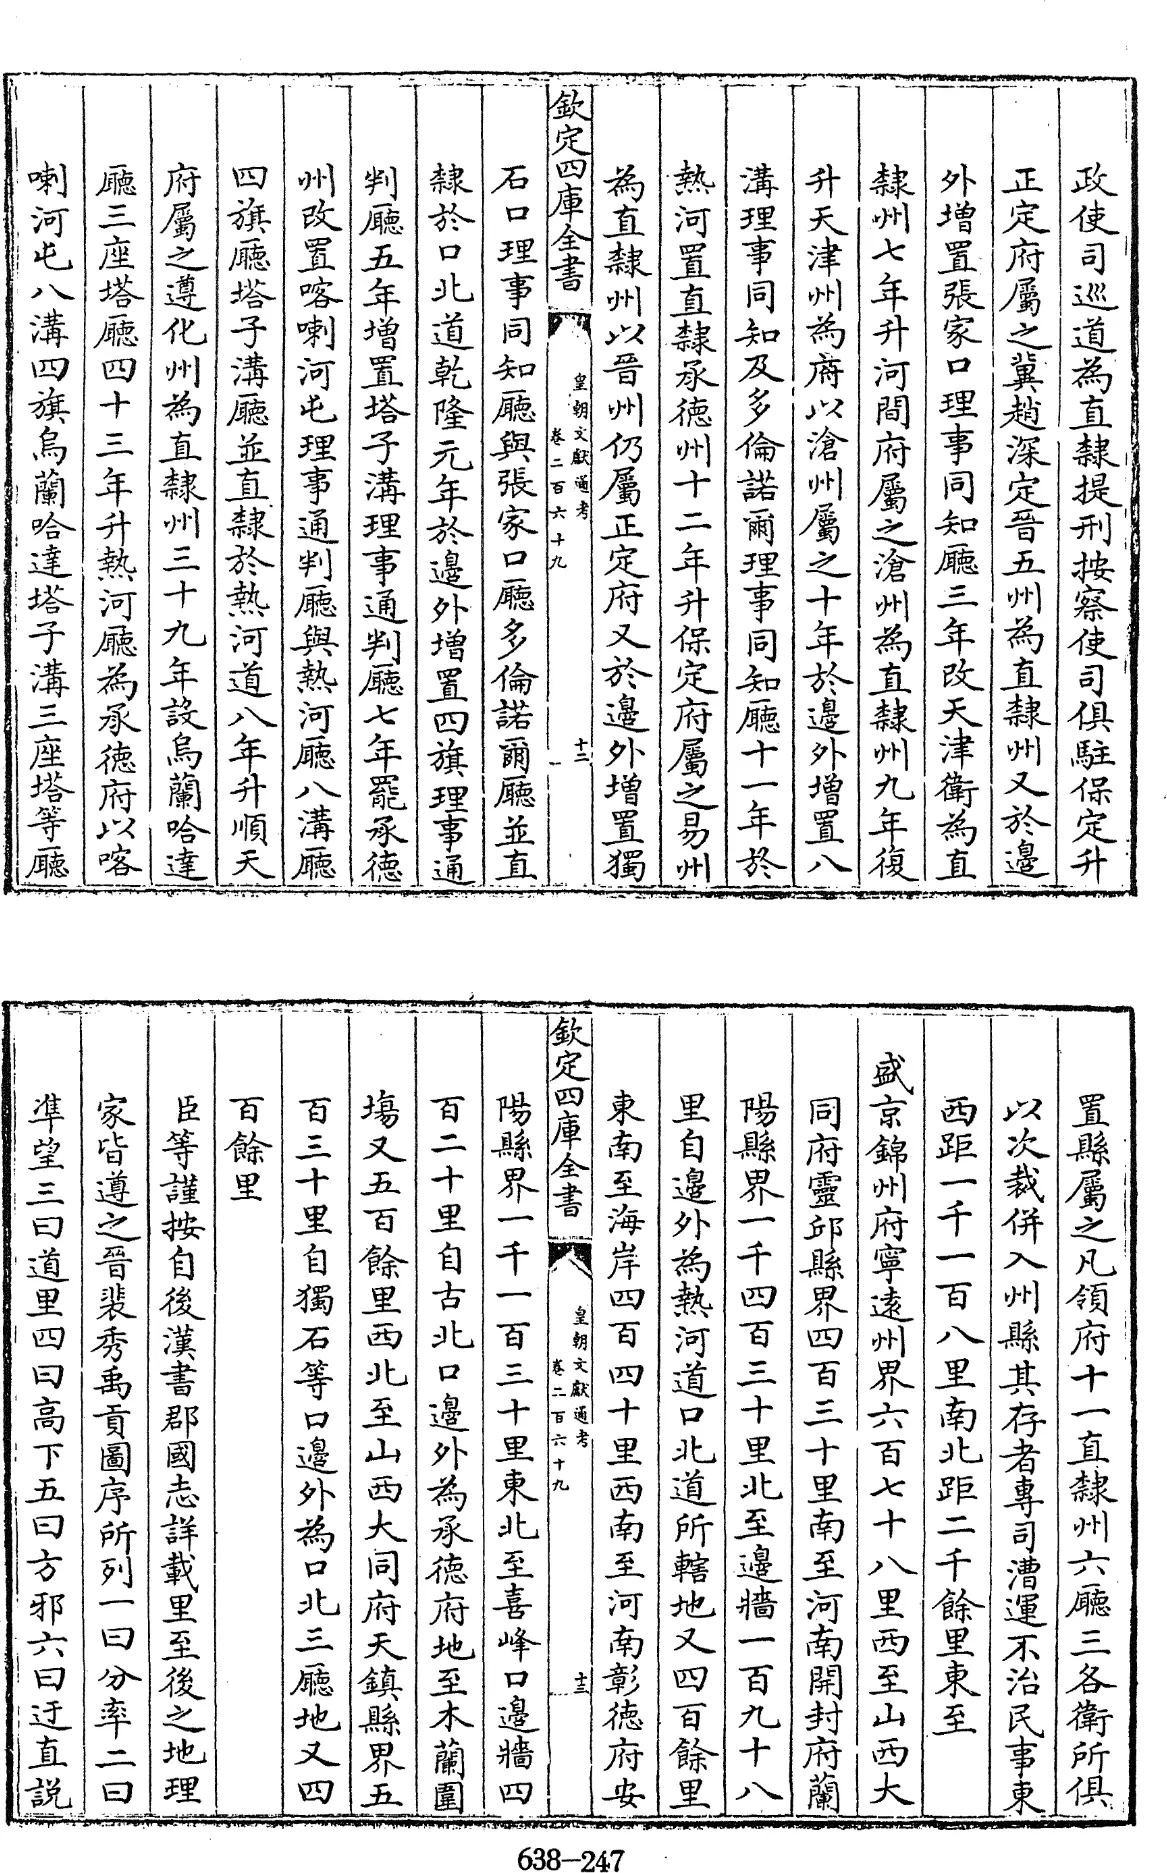 政使司巡道為直隸提刑按察使司俱駐保定升
正定府屬之冀趙深定晉五州為直隸州又於邊
外增置張家口理事同知廳三年改天津衛為直
隸州七年升河間府屬之滄州為直隸州九年復
升天津州為府以滄州屬之十年於邊外增置八
溝理事同知及多倫諾爾理事同知廳十一年於
熱河置直隸承德州十二年升保定府屬之易州
為直隸州以晉州仍屬正定府又於邊外增置獨
欽定四庫全書
皇朝文獻通考
卷二百六十九
十二
石口理事同知廳與張家口廳多倫諾爾廳並直
隸於口北道乾隆元年於邊外增置四旗理事通
判廳五年增置塔子溝理事通判廳七年罷承德
州改置喀喇河屯理事通判廳與熱河廳八溝廳
四旗廳塔子溝廳並直隸於熱河道八年升順天
府屬之遵化州為直隸州三十九年設烏蘭哈達
廳三座塔廳四十三年升熱河廳為承德府以喀
喇河屯八溝四旗烏蘭哈達塔子溝三座塔等廳
置縣屬之凡領府十一直隸州六廳三各衛所俱
以次裁併入州縣其存者專司漕運不治民事東
西距一千一百八里南北距二千餘里東至
盛京錦州府寧遠州界六百七十八里西至山西大
同府靈邱縣界四百三十里南至河南開封府蘭
陽縣界一千四百三十里北至邊牆一百九十八
里自邊外為熱河道口北道所轄地又四百餘里
東南至海岸四百四十里西南至河南彰德府安
欽定四庫全書
皇朝文獻通考
卷二百六十九
十三
陽縣界一千一百三十里東北至喜峰口邊牆四
百二十里自古北口邊外為承德府地至木蘭圍
場又五百餘里西北至山西大同府天鎮縣界五
百三十里自獨石等口邊外為口北三廳地又四
百餘里
臣等謹按自後漢書郡國志詳載里至後之地理
家皆遵之晉裴秀禹貢圖序所列一曰分率二曰
準望三曰道里四曰高下五曰方邪六曰迂直説
638-247